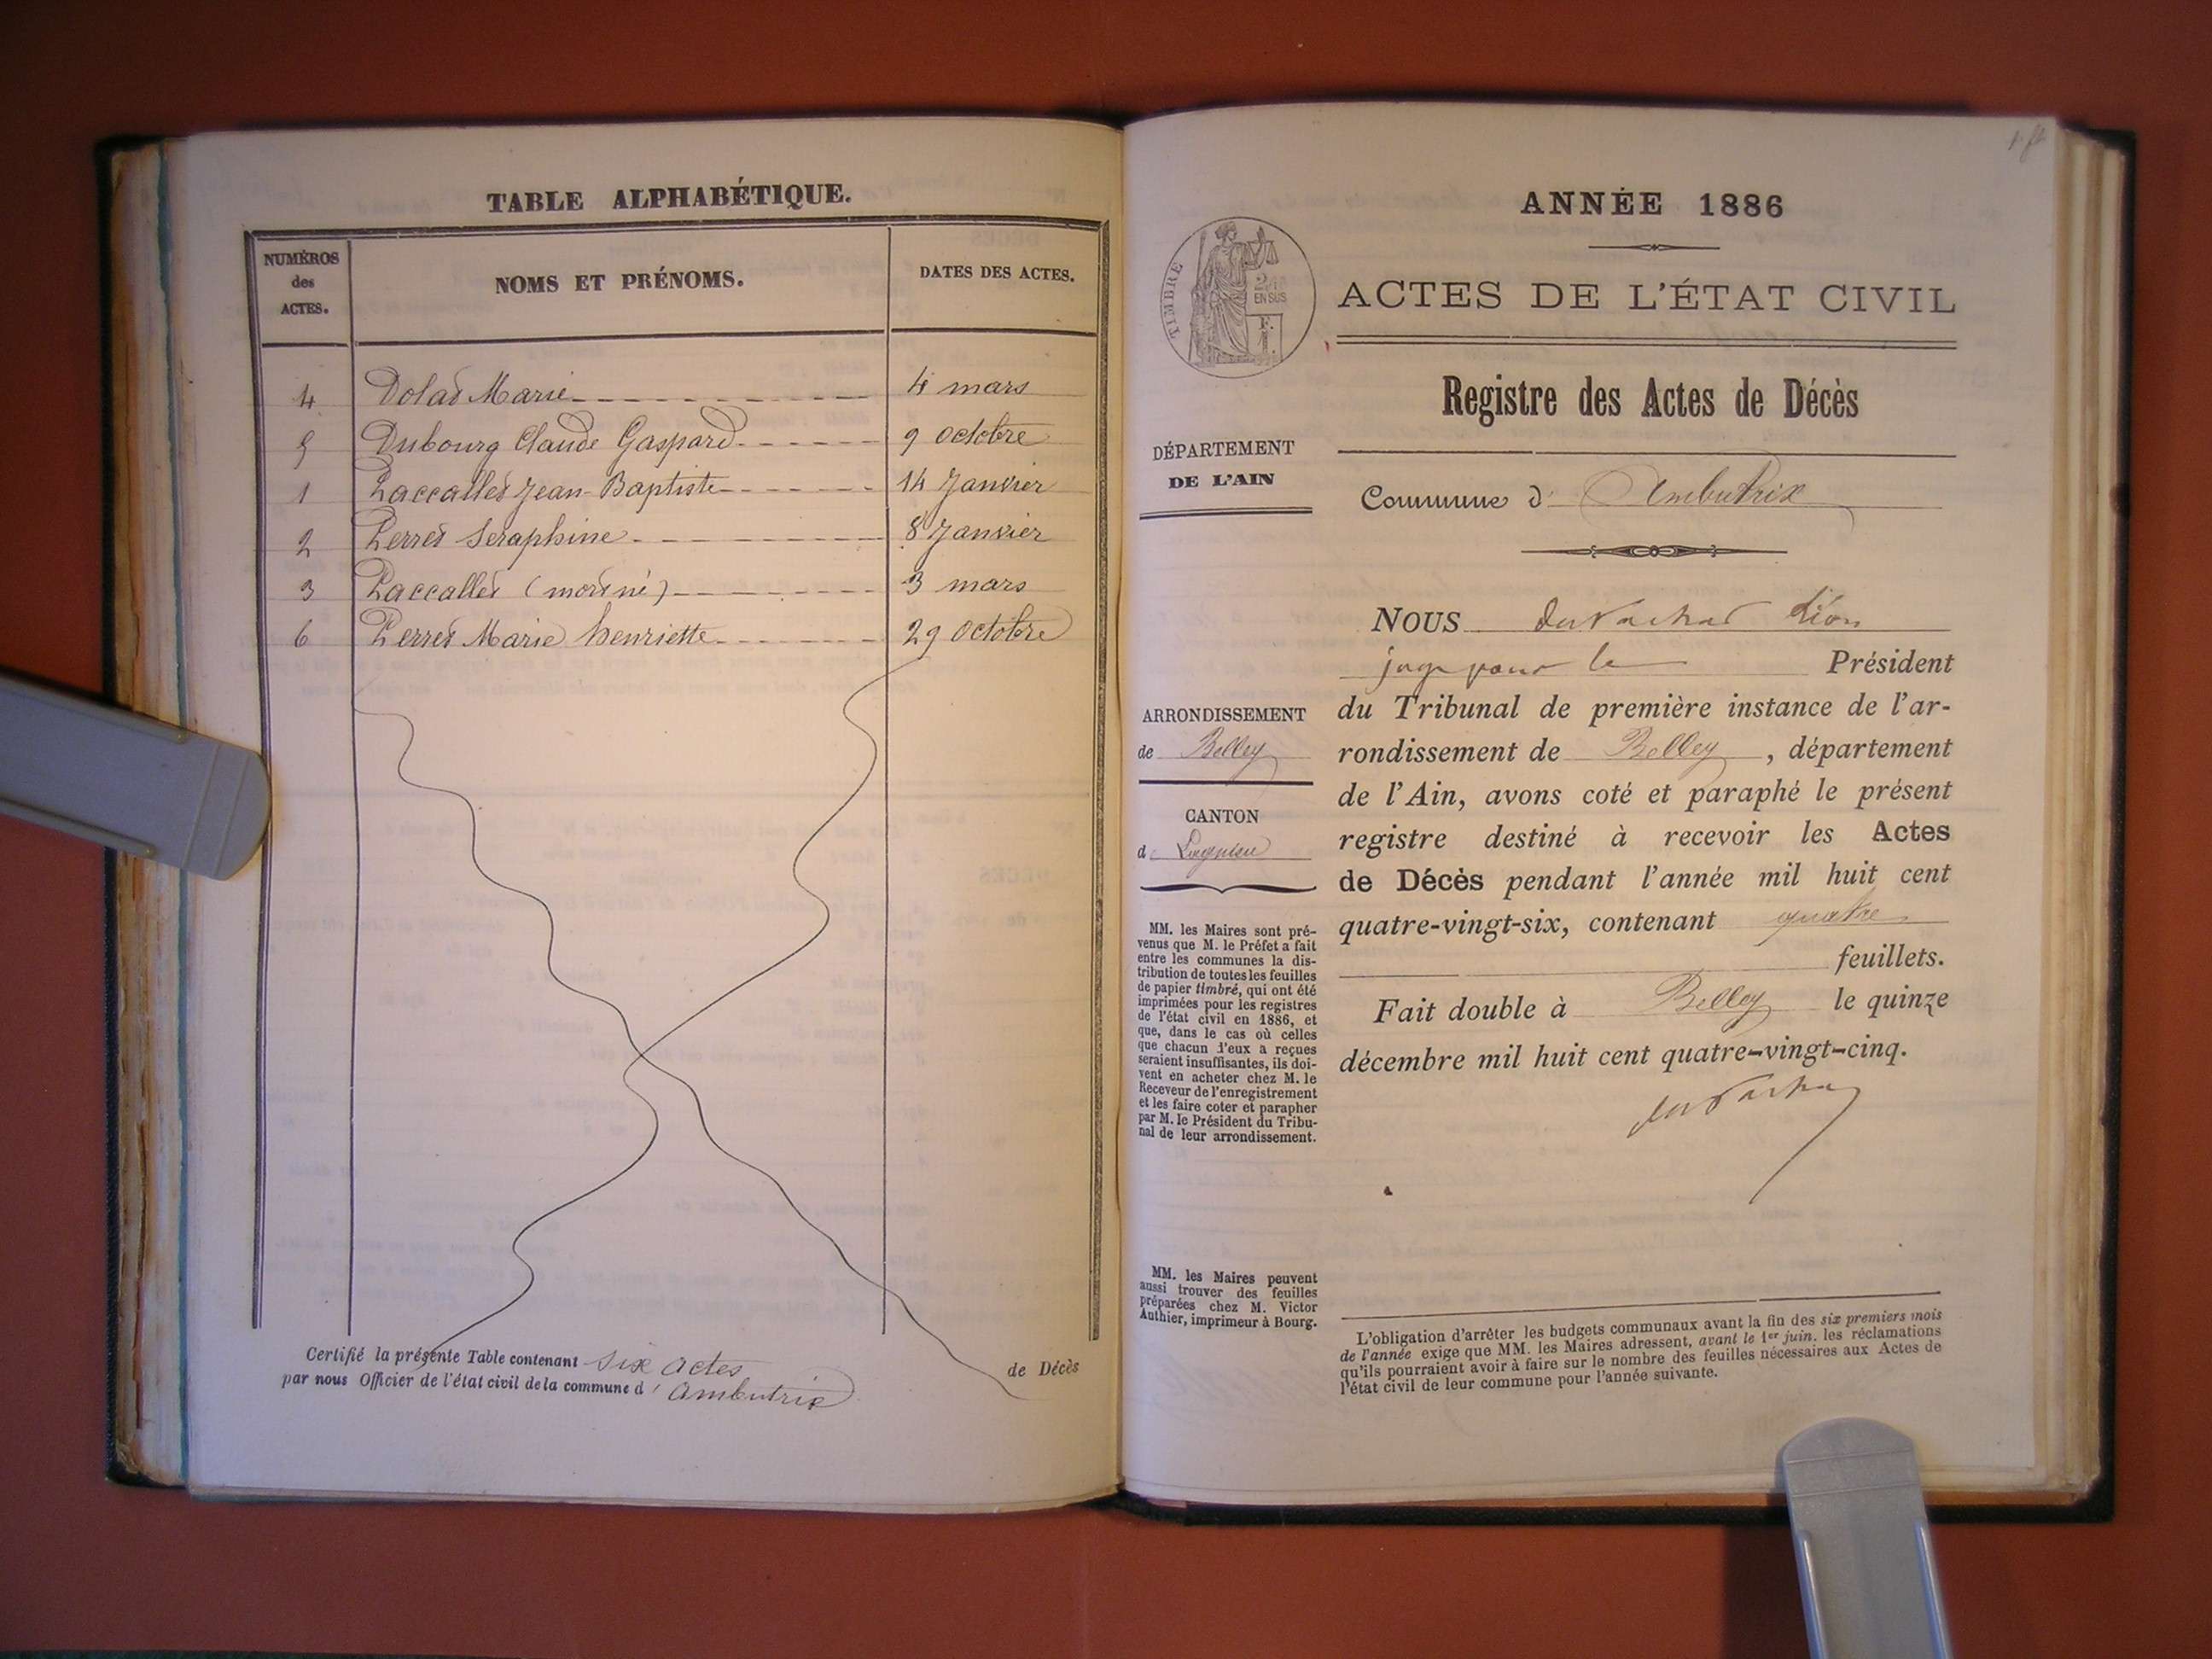 TABLE ALPHABÉTIQUE.
NUMÉROS des ACTES.
NOMS ET PRÉNOMS.
DATES DES ACTES.
4 Dolat Marie 4 mars
5 Dubourg Claude Gaspard 9 octobre
1 Paccallet Jean-Baptiste 14 Janvier
2 Perret Seraphine 8 Janvier
3 Paccallet (mort né) 3 mars
6 Perret Marie henriette 29 octobre
Certifié la présente Table contenant six actes de Décès
par nous Officier de l'état civil de la commune d'Ambutrix
ANNÉE 1886
TIMBRE
2/10
EN SUS
ACTES DE L'ÉTAT CIVIL
Registre des Actes de Décès
DÉPARTEMENT
DE L'AIN
Commune d'Ambutrix
NOUS Léon
juge pour le Président
du Tribunal de première instance de l'ar-
rondissement de Belley, département
de l'Ain, avons coté et paraphé le présent
registre destiné à recevoir les Actes
de Décès pendant l'année mil huit cent
quatre-vingt-six, contenant quatre
feuillets.
Fait double à Belley le quinze
décembre mil huit cent quatre-vingt-cinq.
ARRONDISSEMENT
de Belley
CANTON
de Lagnieu
MM. les Maires sont pré-
venus que M. le Préfet a fait
entre les communes la dis-
tribution de toutes les feuilles
de papier timbré, qui ont été
imprimées pour les registres
de l'état civil en 1886, et
que, dans le cas où celles
que chacun d'eux a reçues
seraient insuffisantes, ils doi-
vent en acheter chez M. le
Receveur de l'enregistrement
et les faire coter et parapher
par M. le Président du Tribu-
nal de leur arrondissement.
MM. les Maires peuvent
aussi trouver des feuilles
préparées chez M. Victor
Authier, imprimeur à Bourg.
L'obligation d'arrêter les budgets communaux avant la fin des six premiers mois
de l'année exige que MM. les Maires adressent, avant le 1er juin, les réclamations
qu'ils pourraient avoir à faire sur le nombre des feuilles nécessaires aux Actes de
l'état civil de leur commune pour l'année suivante.